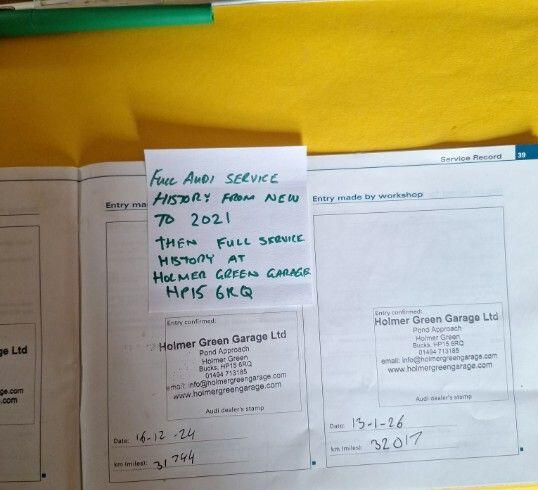 Service Record 39
FULL AUDI SERVICE
HISTORY FROM NEW
TO 2021
THEN FULL SERVICE
HISTORY AT
HOLMER GREEN GARAGE
HP15 6RQ
Entry ma
Entry confirmed:
Holmer Green Garage Ltd
Pond Approach
Holmer Green
Bucks. HP15 6RQ
01494 713185
email: info@holmergreengarage.com
www.holmergreengarage.com
Audi dealer's stamp
Date: 16-12-24
km (miles): 31744
Entry made by workshop
Entry confirmed:
Holmer Green Garage Ltd
Pond Approach
Holmer Green
Bucks. HP15 6RQ
01494 713185
email: info@holmergreengarage.com
www.holmergreengarage.com
Audi dealer's stamp
Date: 13-1-26
km (miles): 32017
ge Ltd
ge.com
.com